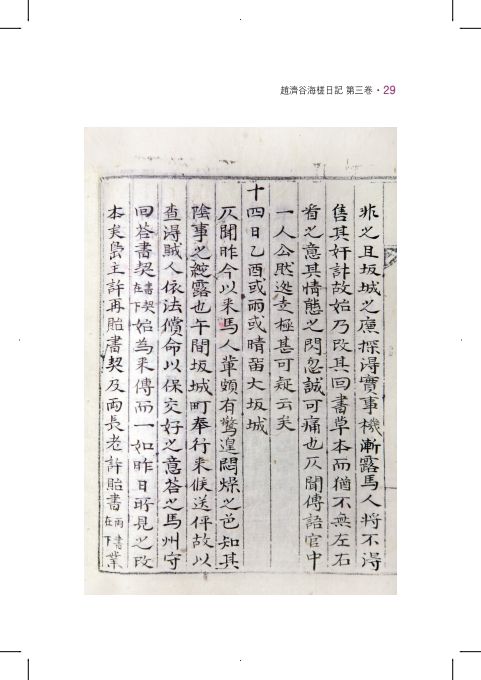 趙濟谷海槎日記 第三卷 • 29
非之且坂城之廉探淂實事機漸露馬人將不淂
售其奸計故始乃改其回書草本而猶不無左右
看之意其情態之閃忽誠可痛也仄聞傳語官中
一人公然逃走極甚可疑云矣
十四日乙酉或雨或晴留大坂城
仄聞昨今以来馬人軰頗有驚遑悶燥之色知其
陰事之綻露也午間坂城町奉行来候送伻故以
查淂賊人依法償命以保交好之意荅之馬州守
回荅書契在書下契始為来傳而一如昨日所見之改
本矣島主許再貽書契及両長老許貽書両書在下業